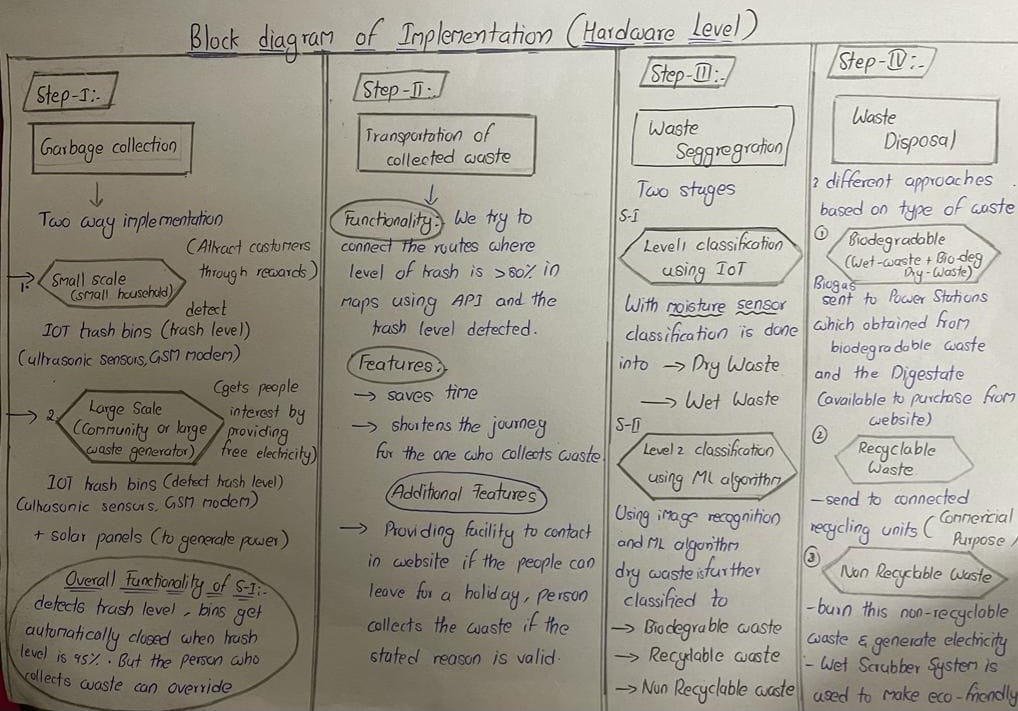 Block diagram of Implementation (Hardware Level)
Step-I:-
Garbage collection
Two way implementation
(Attract customers
through rewards)
1. Small scale
(small household)
detect
IOT trash bins (trash level)
(ultrasonic sensors, GSM modem)
2. Large Scale
(Community or large
waste generator)
(gets people
interest by
providing
free electricity)
IOT trash bins (detect trash level)
(ultrasonic sensors, GSM modem)
+ solar panels (to generate power)
Overall Functionality of S-I:-
detects trash level, bins get
automatically closed when trash
level is 95%. But the person who
collects waste can override
Step-II:-
Transportation of
collected waste
Functionality:- We try to
connect the routes where
level of trash is >80% in
maps using API and the
trash level detected.
Features:-
→ saves time
→ shortens the journey
for the one who collects waste
Additional Features
→ Providing facility to contact
in website if the people can
leave for a holiday, person
collects the waste if the
stated reason is valid.
Step-III:-
Waste
Seggregration
Two stages
S-I
Level1 classification
using IoT
With moisture sensor
classification is done
into → Dry Waste
→ Wet Waste
S-II
Level 2 classification
using ML algorithm
Using image recognition
and ML algorithm
dry waste is further
classified to
→ Biodegrable waste
→ Recyclable waste
→ Non Recyclable waste
Step-IV:-
Waste
Disposal
different approaches
based on type of waste
① Biodegradable
(Wet-waste + Bio-deg
Dry-Waste)
Biogas
sent to Power Stations
which obtained from
biodegradable waste
and the Digestate
(available to purchase from
website)
② Recyclable
Waste
- send to connected
recycling units (Commericial
Purpose)
③ Non Recyclable Waste
- burn this non-recyclable
waste & generate electricity
- Wet Scrubber System is
used to make eco-friendly